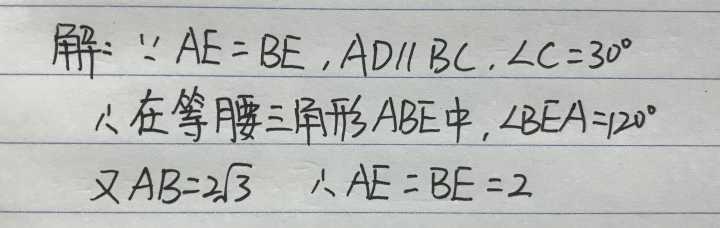 解：∵ AE=BE，AD∥BC，∠C=30°
∴在等腰三角形ABE中，∠BEA=120°
又AB=2√3 ∴AE=BE=2